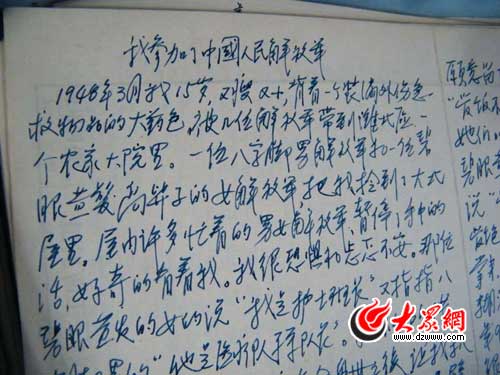 我参加了中國人民解放军
1948年3月我15岁,又瘦又小,背着一个装满外伤急
救物品的大药包,被几位解放军带到潍北庄一
个农家大院里。一位八字脚男解放军和一位碧
眼黄髮高鼻子的女解放军把我拎到了大北
屋里。屋内许多忙着的男女解放军,暂停了手中的
活,好奇的看着我。我很恐惧和忐忑不安。那位
碧眼黄发的女的说"我是护士班长"又指指八
"他是医疗队手队长"。
颐
"发饭
她们
碧眼
说"
大众網
www.dzwww.com